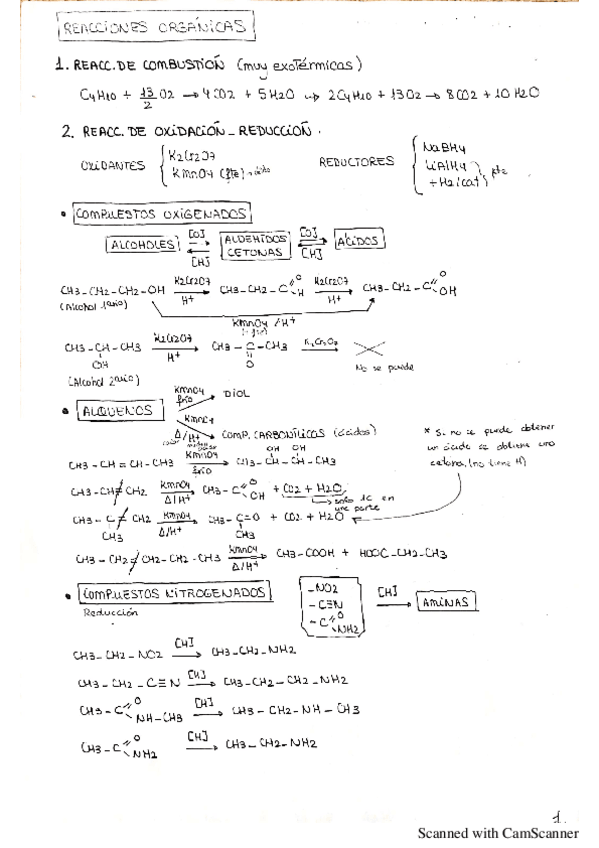 REACCIONES ORGÁNICAS
1. REACC. DE COMBUSTIÓN (muy exotérmicas)
C4H10 + 13/2 O2 → 4CO2 + 5H2O ⇝ 2C4H10 + 13O2 → 8CO2 + 10H2O
2. REACC. DE OXIDACIÓN_REDUCCIÓN.
OXIDANTES { K2Cr2O7
KMnO4 (fte)
REDUCTORES { NaBH4
LiAlH4
+H2/cat } fte
• COMPUESTOS OXIGENADOS
ALCOHOLES [O] ⇄ [H] ALDEHIDOS CETONAS [O] ⇄ [H] ACIDOS
CH3-CH2-CH2-OH K2Cr2O7 / H+ → CH3-CH2-C=O H K2Cr2O7 / H+ → CH3-CH2-C=O OH
(Alcohol 1ario)
KMnO4/H+
CH3-CH-CH3 K2Cr2O7 / H+ → CH3-C-CH3 K2Cr2O7 →
OH O No se puede
(Alcohol 2ario)
• ALQUENOS KMnO4 frio → DIOL
KMnO4 Δ/H+ → COMP. CARBONÍLICOS (ácidos)
* Si no se puede obtener
un ácido se obtiene una
cetona, (no tiene H)
OH OH
CH3-CH=CH-CH3 KMnO4 frio → CH3-CH-CH-CH3
CH3-CH=CH2 KMnO4 Δ/H+ → CH3-C=O OH + CO2 + H2O
→ solo 1C en
una parte
CH3-C=CH2 KMnO4 Δ/H+ → CH3-C=O + CO2 + H2O
CH3 CH3
CH3-CH2=CH2-CH2-CH3 KMnO4 Δ/H+ → CH3-COOH + HOOC-CH2-CH3
• COMPUESTOS NITROGENADOS
Reducción
-NO2
-C≡N
-C=O NH2
[H] → AMINAS
CH3-CH2-NO2 [H] → CH3-CH2-NH2
CH3-CH2-C≡N [H] → CH3-CH2-CH2-NH2
CH3-C=O NH-CH3 [H] → CH3-CH2-NH-CH3
CH3-C=O NH2 [H] → CH3-CH2-NH2
1.
Scanned with CamScanner